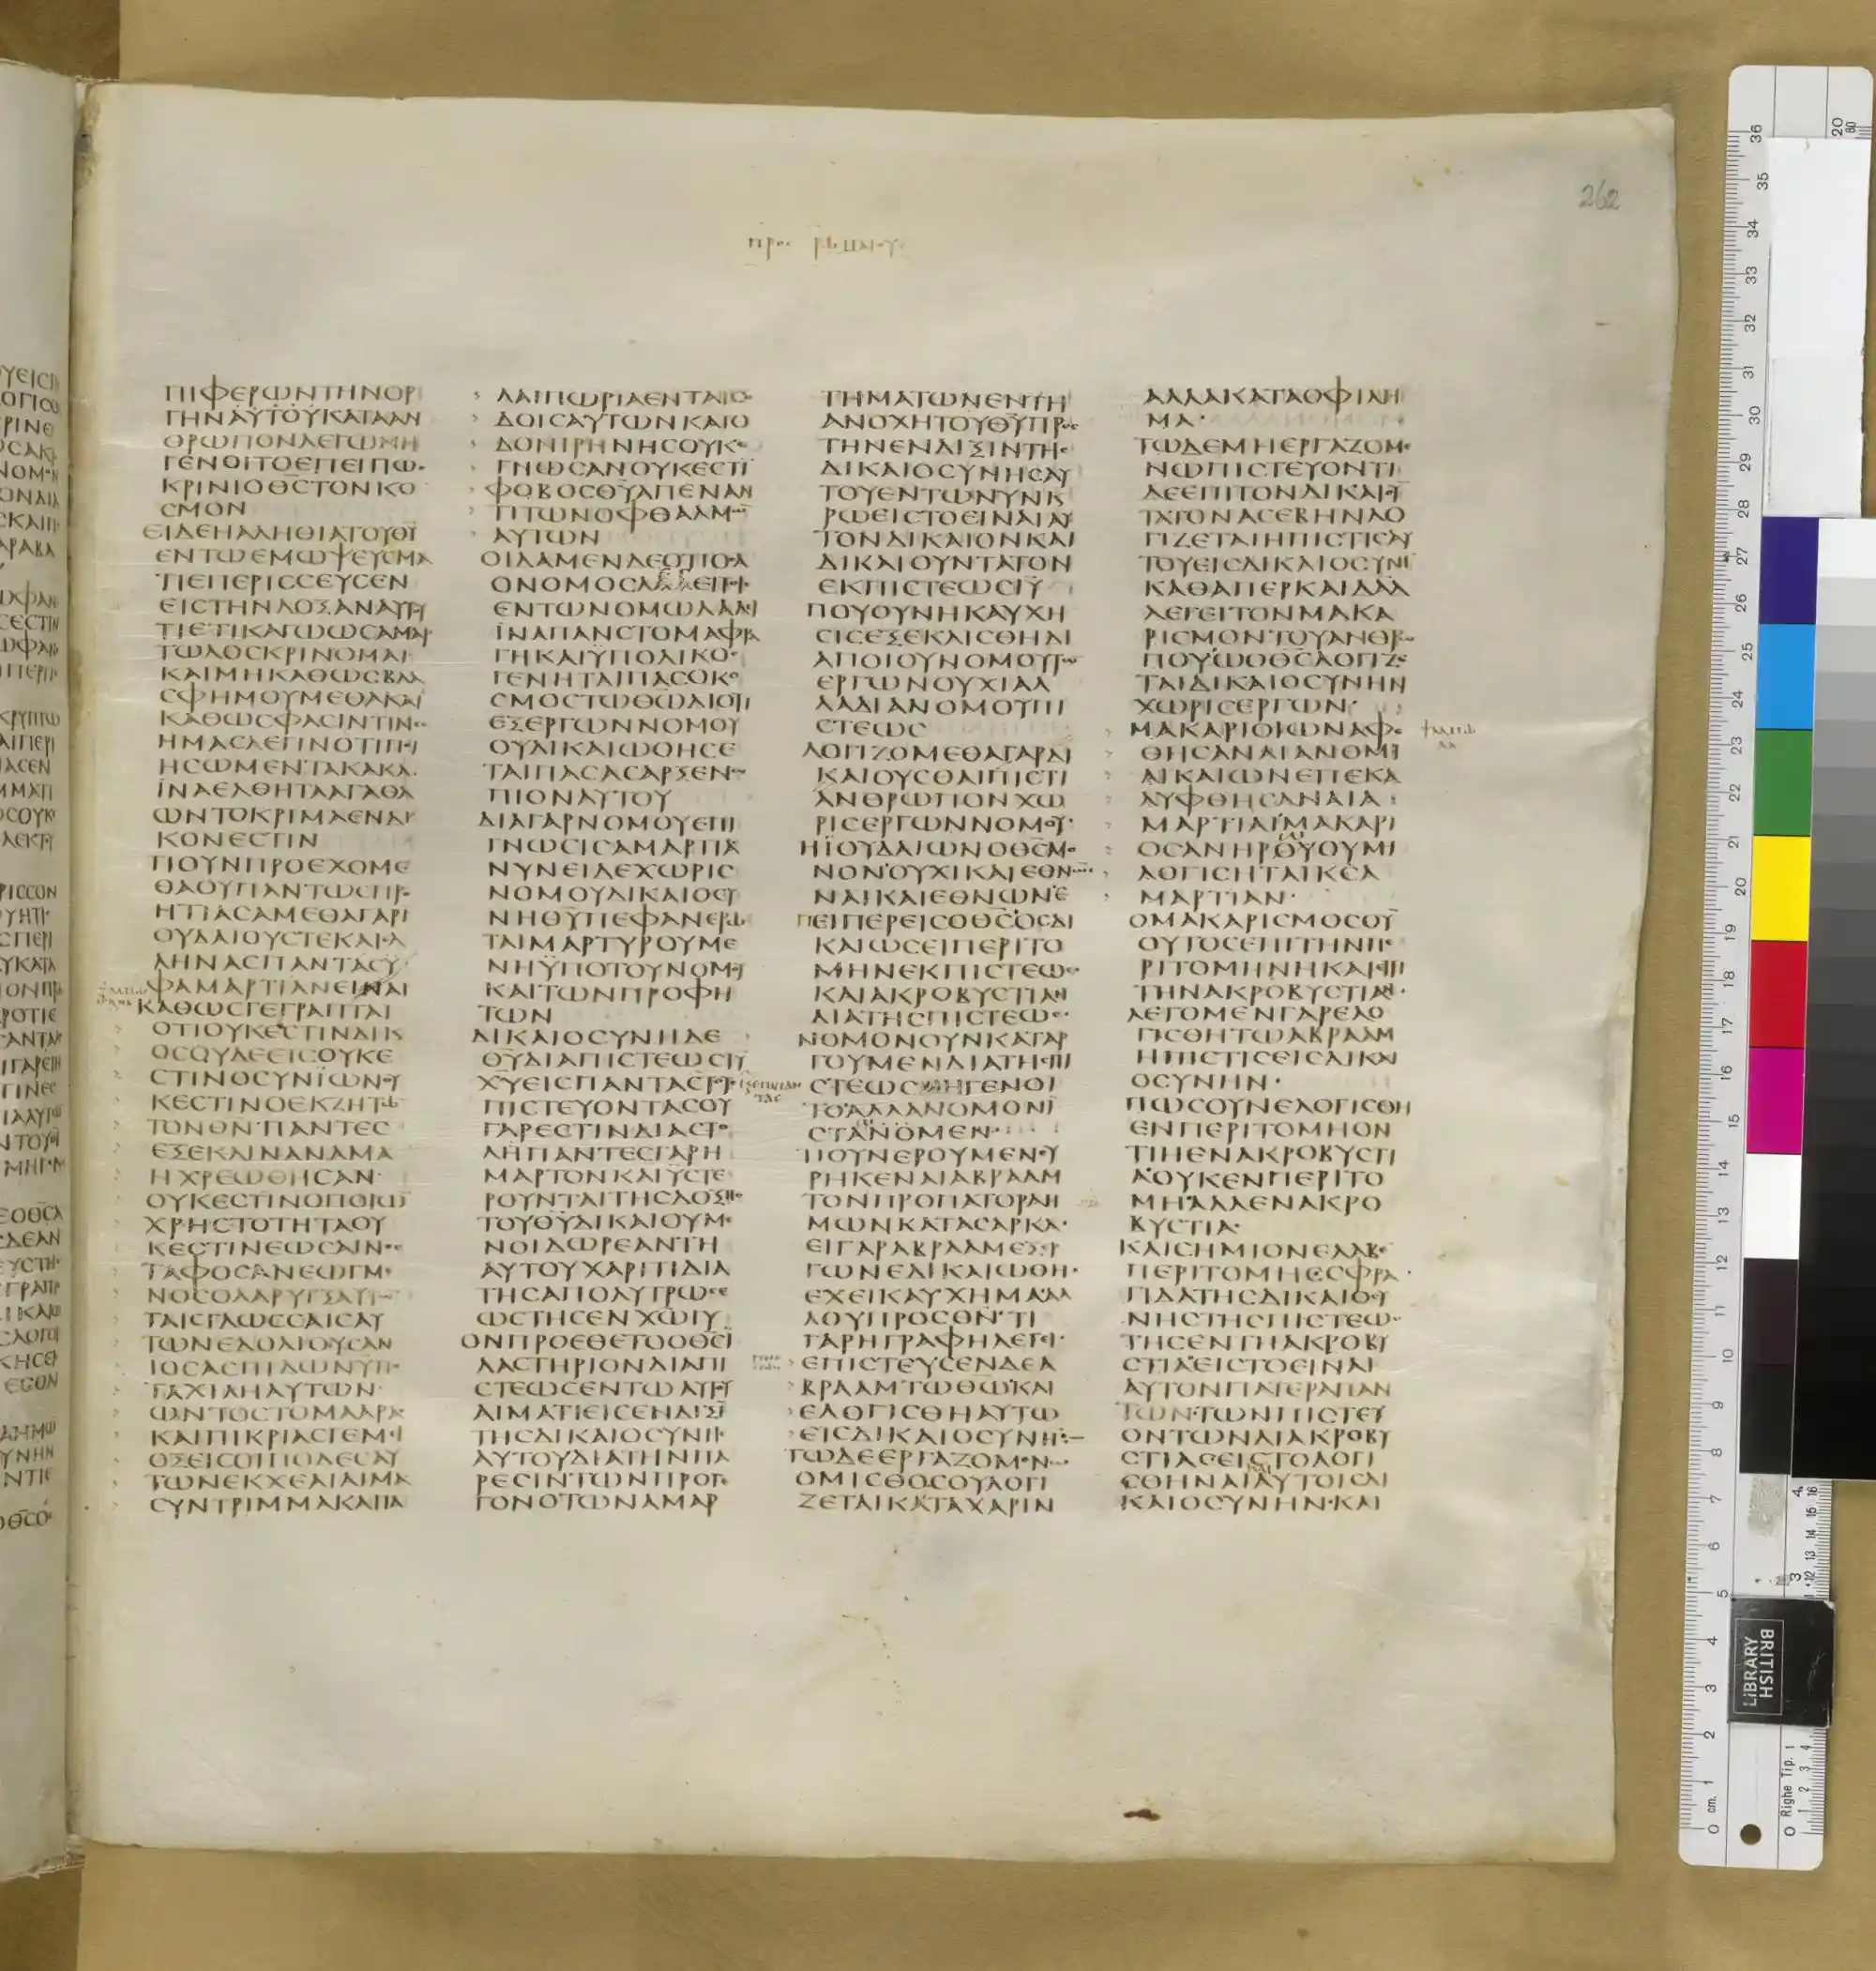 262
προς ρωμαιους
ΠΙΦΕΡΩΝΤΗΝΟΡ
ΓΗΝΑΥΤΟΥΚΑΤΑΑΝ
ΘΡΩΠΟΝΛΕΓΩΜΗ
ΓΕΝΟΙΤΟΕΠΕΙΠΩϹ
ΚΡΙΝΙΟΘϹΤΟΝΚΟ
ϹΜΟΝ
ΕΙΔΕΗΑΛΗΘΙΑΤΟΥΘΥ
ΕΝΤΩΕΜΩΨΕΥϹΜΑ
ΤΙΕΠΕΡΙϹϹΕΥϹΕΝ
ΕΙϹΤΗΝΔΟΞΑΝΑΥΤΟΥ
ΤΙΕΤΙΚΑΓΩΩϹΑΜΑΡ
ΤΩΛΟϹΚΡΙΝΟΜΑΙ
ΚΑΙΜΗΚΑΘΩϹΒΛΑ
ϹΦΗΜΟΥΜΕΘΑΚΑΙ
ΚΑΘΩϹΦΑϹΙΝΤΙΝΕϹ
ΗΜΑϹΛΕΓΙΝΟΤΙΠΟΙ
ΗϹΩΜΕΝΤΑΚΑΚΑ
ΪΝΑΕΛΘΗΤΑΑΓΑΘΑ
ΩΝΤΟΚΡΙΜΑΕΝΔΙ
ΚΟΝΕϹΤΙΝ
ΤΙΟΥΝΠΡΟΕΧΟΜΕ
ΘΑΟΥΠΑΝΤΩϹΠΡΟ
ΗΤΙΑϹΑΜΕΘΑΓΑΡΙ
ΟΥΔΑΙΟΥϹΤΕΚΑΙΕΛ
ΛΗΝΑϹΠΑΝΤΑϹΥ
ΦΑΜΑΡΤΙΑΝΕΙΝΑΙ
ΚΑΘΩϹΓΕΓΡΑΠΤΑΙ
ΟΤΙΟΥΚΕϹΤΙΝΔΙΚ
ΟϹΟΥΔΕΕΙϹΟΥΚΕ
ϹΤΙΝΟϹΥΝΪΩΝΟΥ
ΚΕϹΤΙΝΟΕΚΖΗΤΩ
ΤΟΝΘΝΠΑΝΤΕϹ
ΕΞΕΚΛΙΝΑΝΑΜΑ
ΗΧΡΕΩΘΗϹΑΝ
ΟΥΚΕϹΤΙΝΟΠΟΙΩ
ΧΡΗϹΤΟΤΗΤΑΟΥ
ΚΕϹΤΙΝΕΩϹΕΝΟϹ
ΤΑΦΟϹΑΝΕΩΓΜΕ
ΝΟϹΟΛΑΡΥΓΞΑΥΤΩ
ΤΑΙϹΓΛΩϹϹΑΙϹΑΥ
ΤΩΝΕΔΟΛΙΟΥϹΑΝ
ΙΟϹΑϹΠΙΔΩΝΥΠΟ
ΤΑΧΙΛΗΑΥΤΩΝ
ΩΝΤΟϹΤΟΜΑΑΡΑ
ΚΑΙΠΙΚΡΙΑϹΓΕΜΕΙ
ΟΞΕΙϹΟΙΠΟΔΕϹΑΥ
ΤΩΝΕΚΧΕΑΙΑΙΜΑ
ϹΥΝΤΡΙΜΜΑΚΑΙΤΑ
ΛΑΙΠΩΡΙΑΕΝΤΑΙϹΟ
ΔΟΙϹΑΥΤΩΝΚΑΙΟ
ΔΟΝΙΡΗΝΗϹΟΥΚΕ
ΓΝΩϹΑΝΟΥΚΕϹΤΙ
ΦΟΒΟϹΘΥΑΠΕΝΑΝ
ΤΙΤΩΝΟΦΘΑΛΜΩ
ΑΥΤΩΝ
ΟΙΔΑΜΕΝΔΕΟΤΙΟϹΑ
ΟΝΟΜΟϹΛΕΓΕΙΤΟΙϹ
ΕΝΤΩΝΟΜΩΛΑΛΕΙ
ΪΝΑΠΑΝϹΤΟΜΑΦΡΑ
ΓΗΚΑΙΫΠΟΔΙΚΟϹ
ΓΕΝΗΤΑΙΠΑϹΟΚΟ
ϹΜΟϹΤΩΘΩΔΙΟΤΙ
ΕΞΕΡΓΩΝΝΟΜΟΥ
ΟΥΔΙΚΑΙΩΘΗϹΕ
ΤΑΙΠΑϹΑϹΑΡΞΕΝΩ
ΠΙΟΝΑΥΤΟΥ
ΔΙΑΓΑΡΝΟΜΟΥΕΠΙ
ΓΝΩϹΙϹΑΜΑΡΤΙΑϹ
ΝΥΝΕΙΔΕΧΩΡΙϹ
ΝΟΜΟΥΔΙΚΑΙΟϹΥ
ΝΗΘΥΠΕΦΑΝΕΡΩ
ΤΑΙΜΑΡΤΥΡΟΥΜΕ
ΝΗΫΠΟΤΟΥΝΟΜΟΥ
ΚΑΙΤΩΝΠΡΟΦΗ
ΤΩΝ
ΔΙΚΑΙΟϹΥΝΗΔΕ
ΘΥΔΙΑΠΙϹΤΕΩϹΙΥ
ΧΥΕΙϹΠΑΝΤΑϹΤΟΥϹ
ΠΙϹΤΕΥΟΝΤΑϹΟΥ
ΓΑΡΕϹΤΙΝΔΙΑϹΤΟ
ΛΗΠΑΝΤΕϹΓΑΡΗ
ΜΑΡΤΟΝΚΑΙΫϹΤΕ
ΡΟΥΝΤΑΙΤΗϹΔΟΞΗϹ
ΤΟΥΘΥΔΙΚΑΙΟΥΜΕ
ΝΟΙΔΩΡΕΑΝΤΗ
ΑΥΤΟΥΧΑΡΙΤΙΔΙΑ
ΤΗϹΑΠΟΛΥΤΡΩϹΕ
ΩϹΤΗϹΕΝΧΩΙΥ
ΟΝΠΡΟΕΘΕΤΟΟΘϹΙ
ΛΑϹΤΗΡΙΟΝΔΙΑΠΙ
ϹΤΕΩϹΕΝΤΩΑΥΤΟΥ
ΑΙΜΑΤΙΕΙϹΕΝΔΙΞΙ
ΤΗϹΔΙΚΑΙΟϹΥΝΗϹ
ΑΥΤΟΥΔΙΑΤΗΝΠΑ
ΡΕϹΙΝΤΩΝΠΡΟΓΕ
ΓΟΝΟΤΩΝΑΜΑΡ
ΤΗΜΑΤΩΝΕΝΤΗ
ΑΝΟΧΗΤΟΥΘΥΠΡΟϹ
ΤΗΝΕΝΔΙΞΙΝΤΗϹ
ΔΙΚΑΙΟϹΥΝΗϹΑΥ
ΤΟΥΕΝΤΩΝΥΝΚ
ΡΩΕΙϹΤΟΕΙΝΑΙΑΥ
ΤΟΝΔΙΚΑΙΟΝΚΑΙ
ΔΙΚΑΙΟΥΝΤΑΤΟΝ
ΕΚΠΙϹΤΕΩϹΙΥ
ΠΟΥΟΥΝΗΚΑΥΧΗ
ϹΙϹΕΞΕΚΛΙϹΘΗΔΙ
ΑΠΟΙΟΥΝΟΜΟΥΤΩ
ΕΡΓΩΝΟΥΧΙΑΛ
ΛΑΔΙΑΝΟΜΟΥΠΙ
ϹΤΕΩϹ
ΛΟΓΙΖΟΜΕΘΑΓΑΡΔΙ
ΚΑΙΟΥϹΘΑΙΠΙϹΤΙ
ΑΝΘΡΩΠΟΝΧΩ
ΡΙϹΕΡΓΩΝΝΟΜΟΥ
ΗΪΟΥΔΑΙΩΝΟΘϹΜΟ
ΝΟΝΟΥΧΙΚΑΙΕΘΝΩ
ΝΑΙΚΑΙΕΘΝΩΝΕ
ΠΕΙΠΕΡΕΙϹΟΘϹΟϹΔΙ
ΚΑΙΩϹΕΙΠΕΡΙΤΟ
ΜΗΝΕΚΠΙϹΤΕΩϹ
ΚΑΙΑΚΡΟΒΥϹΤΙΑΝ
ΔΙΑΤΗϹΠΙϹΤΕΩϹ
ΝΟΜΟΝΟΥΝΚΑΤΑΡ
ΓΟΥΜΕΝΔΙΑΤΗϹΠΙ
ϹΤΕΩϹΜΗΓΕΝΟΙ
ΤΟΑΛΛΑΝΟΜΟΝΙ
ϹΤΑΝΟΜΕΝ
ΤΙΟΥΝΕΡΟΥΜΕΝΕΥ
ΡΗΚΕΝΑΙΑΒΡΑΑΜ
ΤΟΝΠΡΟΠΑΤΟΡΑΗ
ΜΩΝΚΑΤΑϹΑΡΚΑ
ΕΙΓΑΡΑΒΡΑΑΜΕΞΕΡ
ΓΩΝΕΔΙΚΑΙΩΘΗ
ΕΧΕΙΚΑΥΧΗΜΑΑΛ
ΛΟΥΠΡΟϹΘΝΤΙ
ΓΑΡΗΓΡΑΦΗΛΕΓΕΙ
ΕΠΙϹΤΕΥϹΕΝΔΕΑ
ΒΡΑΑΜΤΩΘΩΚΑΙ
ΕΛΟΓΙϹΘΗΑΥΤΩ
ΕΙϹΔΙΚΑΙΟϹΥΝΗΝ
ΤΩΔΕΕΡΓΑΖΟΜΕΝΩ
ΟΜΙϹΘΟϹΟΥΛΟΓΙ
ΖΕΤΑΙΚΑΤΑΧΑΡΙΝ
ΑΛΛΑΚΑΤΑΟΦΙΛΗ
ΜΑ
ΤΩΔΕΜΗΕΡΓΑΖΟΜΕ
ΝΩΠΙϹΤΕΥΟΝΤΙ
ΔΕΕΠΙΤΟΝΔΙΚΑΙΟΥ
ΤΑΤΟΝΑϹΕΒΗΝΛΟ
ΓΙΖΕΤΑΙΗΠΙϹΤΙϹΑΥ
ΤΟΥΕΙϹΔΙΚΑΙΟϹΥΝΗ
ΚΑΘΑΠΕΡΚΑΙΔΑΔ
ΛΕΓΕΙΤΟΝΜΑΚΑ
ΡΙϹΜΟΝΤΟΥΑΝΘΡΩ
ΠΟΥΩΟΘϹΛΟΓΙΖΕ
ΤΑΙΔΙΚΑΙΟϹΥΝΗΝ
ΧΩΡΙϹΕΡΓΩΝ
ΜΑΚΑΡΙΟΙΩΝΑΦΕ
ΘΗϹΑΝΑΙΑΝΟΜΙ
ΑΙΚΑΙΩΝΕΠΕΚΑ
ΛΥΦΘΗϹΑΝΑΙΑ
ΜΑΡΤΙΑΙΜΑΚΑΡΙ
ΟϹΑΝΗΡΟΥΟΥΜΙ
ΛΟΓΙϹΗΤΑΙΚϹΑ
ΜΑΡΤΙΑΝ
ΟΜΑΚΑΡΙϹΜΟϹΟΥ
ΟΥΤΟϹΕΠΙΤΗΝΠΕ
ΡΙΤΟΜΗΝΗΚΑΙΕΠΙ
ΤΗΝΑΚΡΟΒΥϹΤΙΑΝ
ΛΕΓΟΜΕΝΓΑΡΕΛΟ
ΓΙϹΘΗΤΩΑΒΡΑΑΜ
ΗΠΙϹΤΙϹΕΙϹΔΙΚΑΙ
ΟϹΥΝΗΝ
ΠΩϹΟΥΝΕΛΟΓΙϹΘΗ
ΕΝΠΕΡΙΤΟΜΗΟΝ
ΤΙΗΕΝΑΚΡΟΒΥϹΤΙ
ΑΟΥΚΕΝΠΕΡΙΤΟ
ΜΗΑΛΛΕΝΑΚΡΟ
ΒΥϹΤΙΑ
ΚΑΙϹΗΜΙΟΝΕΛΑΒΕ
ΠΕΡΙΤΟΜΗϹϹΦΡΑ
ΓΙΔΑΤΗϹΔΙΚΑΙΟϹΥ
ΝΗϹΤΗϹΠΙϹΤΕΩϹ
ΤΗϹΕΝΤΗΑΚΡΟΒΥ
ϹΤΙΑΕΙϹΤΟΕΙΝΑΙ
ΑΥΤΟΝΠΑΤΕΡΑΠΑΝ
ΤΩΝΤΩΝΠΙϹΤΕΥ
ΟΝΤΩΝΔΙΑΚΡΟΒΥ
ϹΤΙΑϹΕΙϹΤΟΛΟΓΙ
ϹΘΗΝΑΙΑΥΤΟΙϹΔΙ
ΚΑΙΟϹΥΝΗΝΚΑΙ
BRITISH
LIBRARY